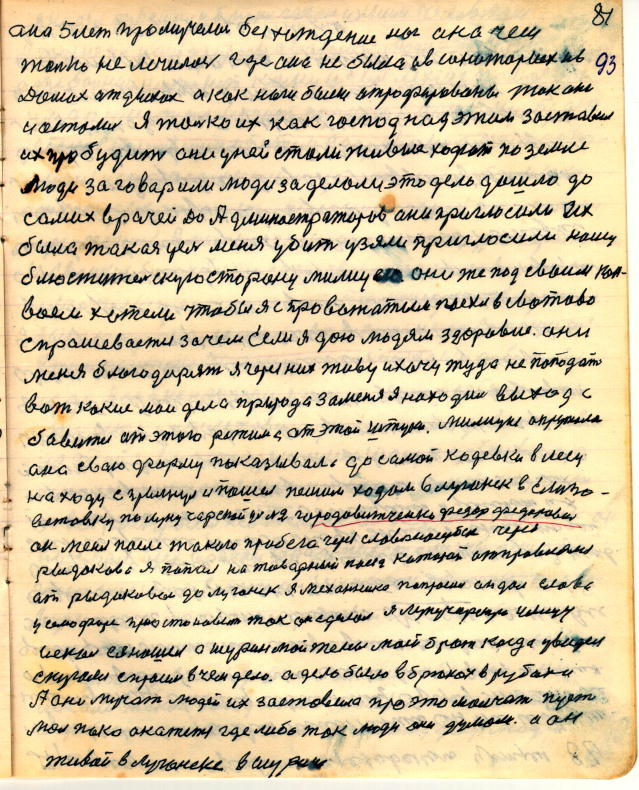 81
93
она 5 лет промучелась без хождение ног она чем
толко не лечилась где она не была и в санаториях и в
Домах отдыхах а как ноги были атрофированы так они
и остались Я толко их как господ над этим заставил
их пробудит они у ней стали живые ходят по земле
люди заговарили люди заделали это дело дошло до
самих врачей до Администраторов они пригласили их
была такая цел меня убит узяли пригласили нашу
блюстителскую сторону милицию они же под своим кон-
воем хотели чтобы я с провожатым поехал в Сватово
спрашевается зачем если я даю людям здоровие. они
меня благодарят я через них живу и хочу туда не поподат
вот какие мои дела природа за меня я находил выход с
бавится от этого режима от этой штуки. милиция окружила
она свою форму показывала до самой Кодевки в лесу
на ходу спригнул и пошел пешим ходом в луганск в Елизо-
ветовку по луначарской ул №2 городовитченко федор федорович
он меня после такого пробега через славяносербск через
Родаково Я попал на товарный поезд который отправлялся
от родаковки до луганск я механника попросил он дал слова
у семафоре приостановит так он сделал Я луначарскую улицу
искал и нашел а шурин моей жены мой брат когда увидел
спугался спросил в чем дело. а дело было в брюках в рубахи
А они мучат людей их заставила про это молчат пуст
мол пака окатется где либо так люди они думали. а он
живой в Луганске в шурина